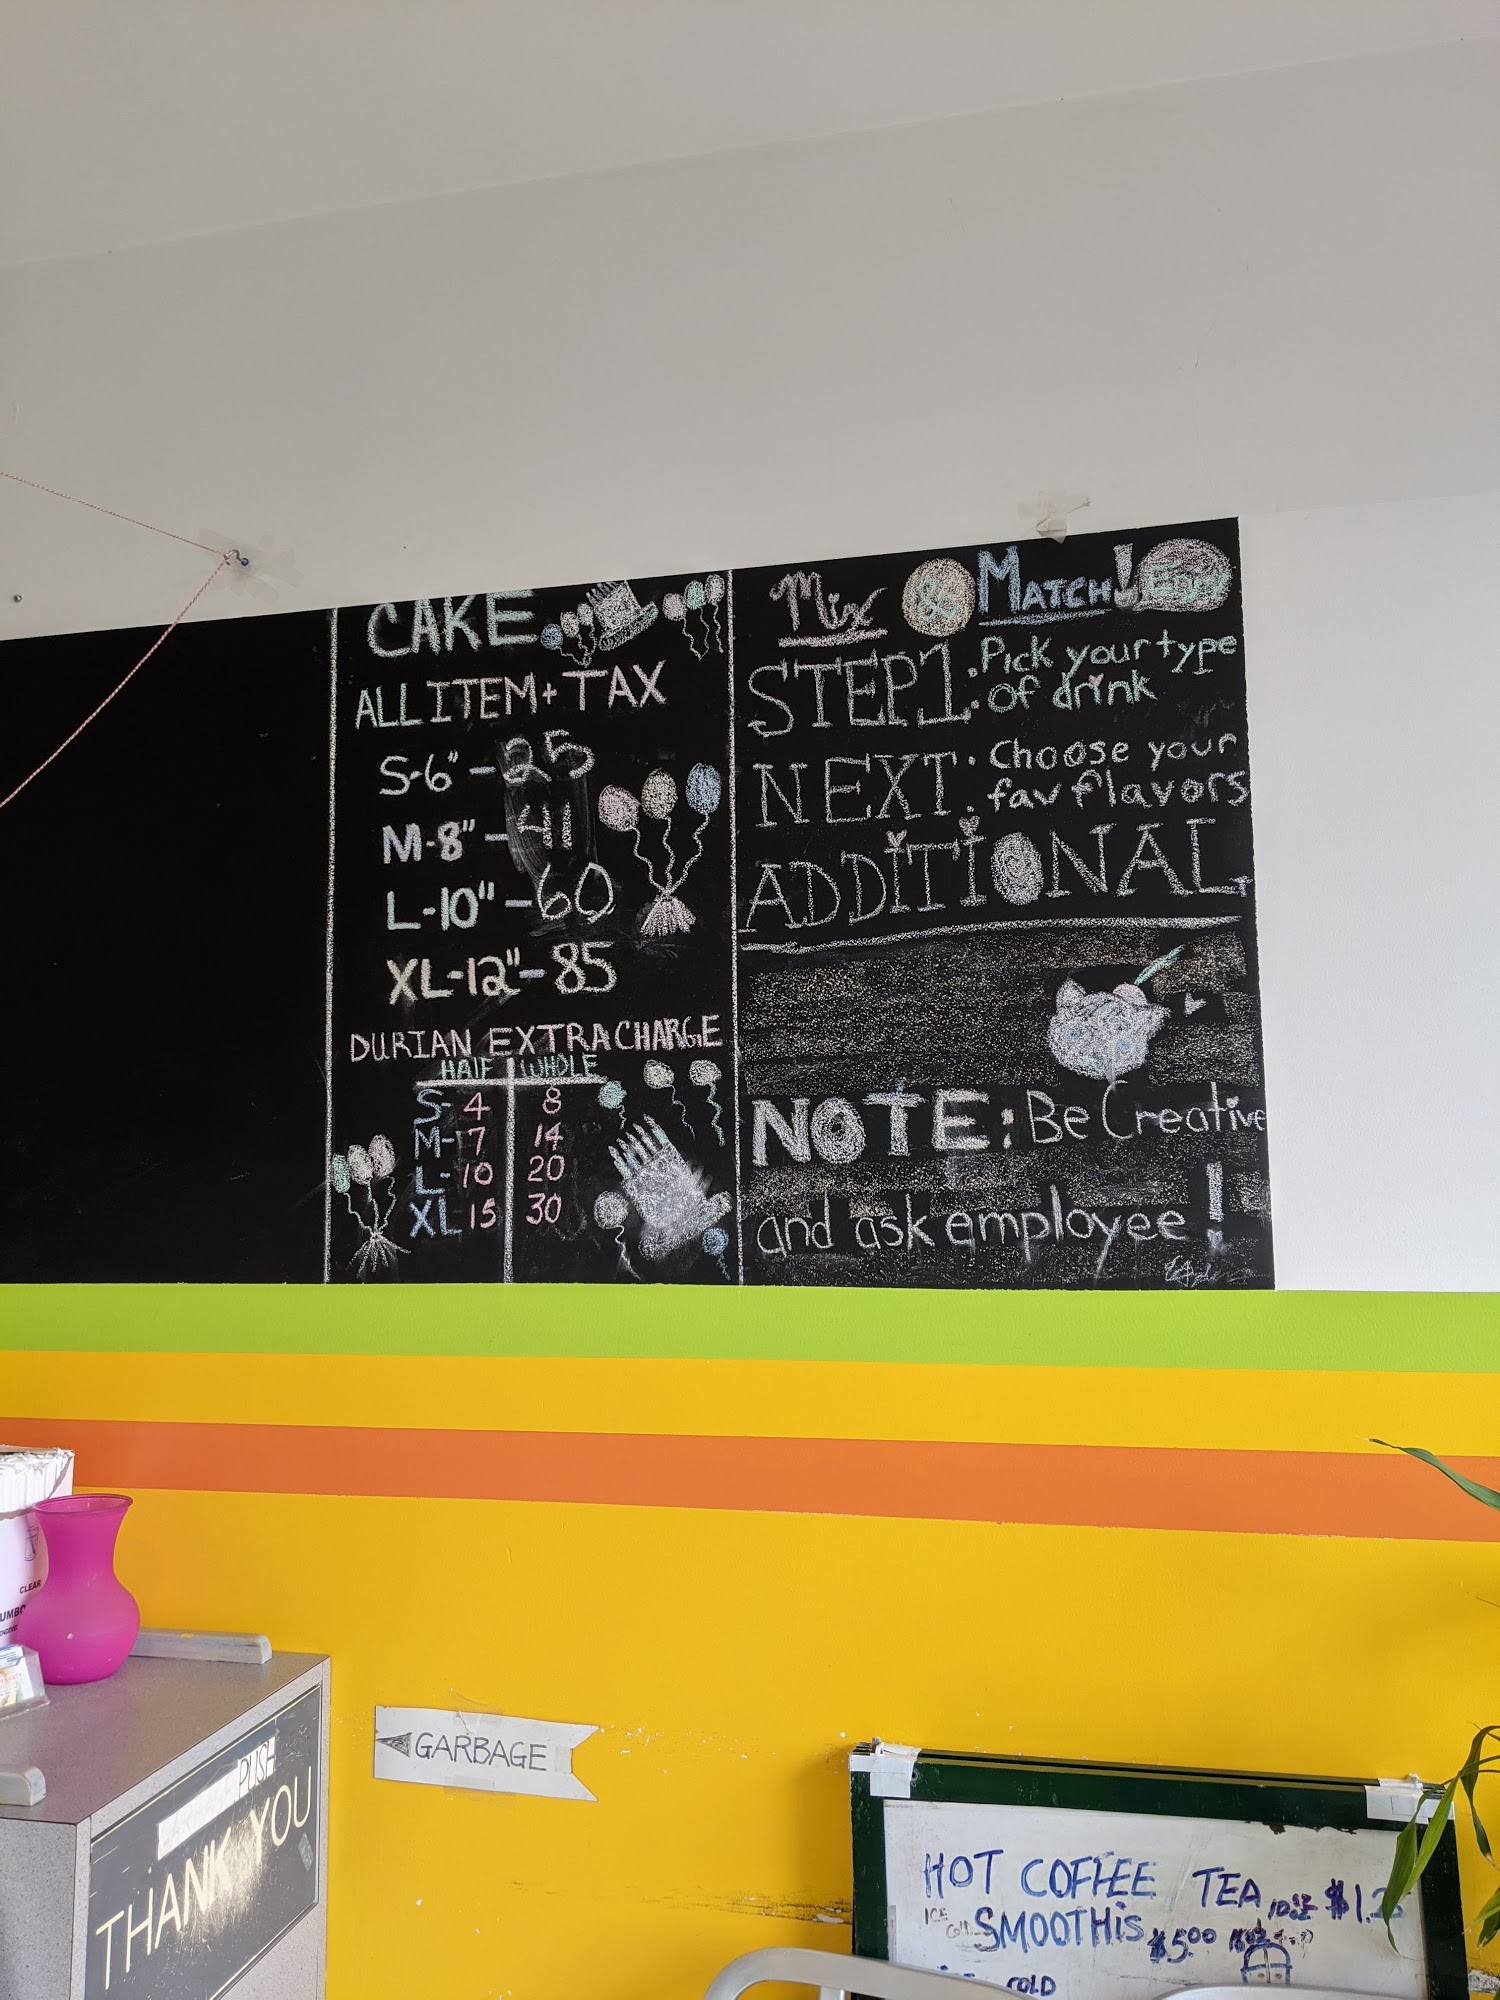 CAKE
ALL ITEM + TAX
S-6" - 25
M-8" - 41
L-10" - 60
XL-12" - 85
DURIAN EXTRA CHARGE
HALF WHOLE
S- 4 8
M- 7 14
L- 10 20
XL 15 30
Mix & MATCH!
STEP1: Pick your type
of drink
NEXT: Choose your
fav flavors
ADDiTiONAL
NOTE: Be Creative
and ask employee!
CLEAR
PUSH
THANK YOU
GARBAGE
HOT COFFEE TEA 10oz $1.25
ICE
COLD
SMOOTHiS $5.00 16oz
COLD